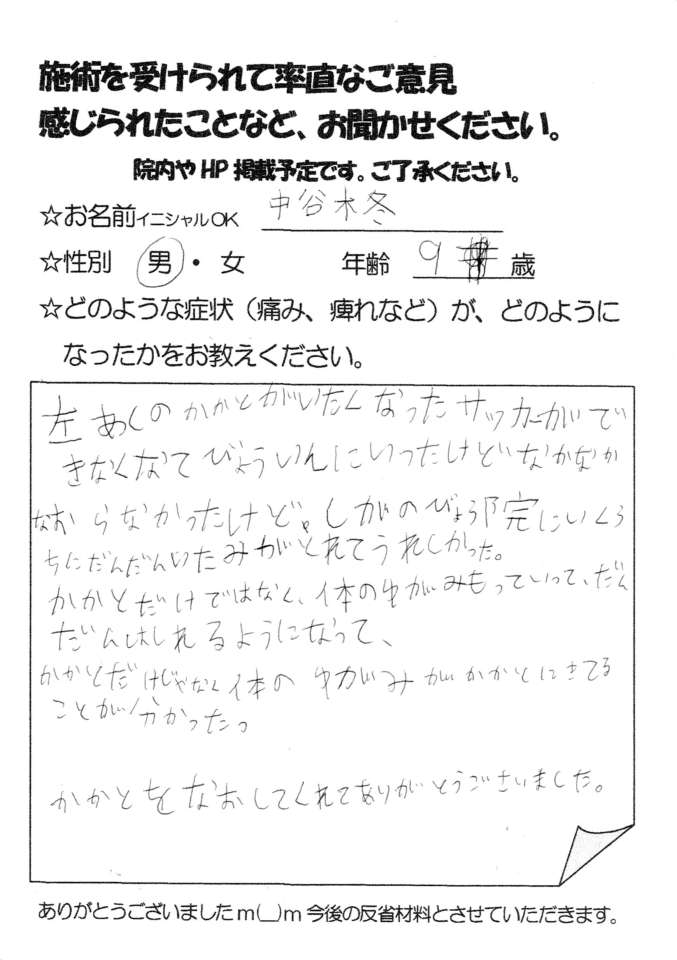 施術を受けられて率直なご意見
感じられたことなど、お聞かせください。
院内やHP掲載予定です。ご了承ください。
☆お名前イニシャルOK 中谷木冬
☆性別 男・女 年齢 9 歳
☆どのような症状（痛み、痺れなど）が、どのように
なったかをお教えください。
左あしのかかとがいたくなったサッカーがで
きなくなてびょういんにいったけどなかなか
なおらなかったけど。しがのびょう院にいくう
ちにだんだんいたみがとれてうれしかった。
かかとだけではなく、体のゆがみもっていって、だん
だんはしれるようになって、
かかとだけじゃなく体のゆがみがかかとにきてる
ことが分かったっ
かかとをなおしてくれてありがとうございました。
ありがとうございましたm(__)m今後の反省材料とさせていただきます。